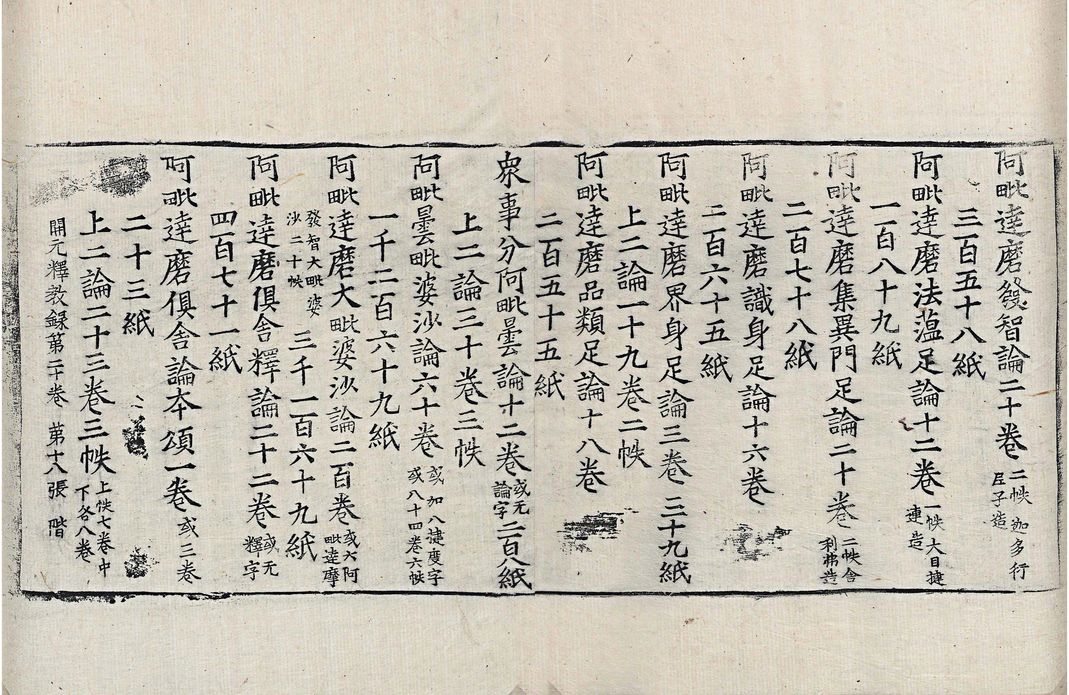 阿毗達磨發智論二十卷 二帙 迦多行尼子造
三百五十八紙
阿毗達磨法蕴足論十二卷 一帙 大目揵連造
一百八十九紙
阿毗達磨集異門足論二十卷 二帙 舍利弗造
二百七十八紙
阿毗達磨識身足論十六卷
二百六十五紙
阿毗達磨界身足論三卷 三十九紙
上二論一十九卷二帙
阿毗達磨品類足論十八卷
二百五十五紙
衆事分阿毗曇論十二卷 或无論字 二百八紙
上二論三十卷三帙
阿毗曇毗婆沙論六十卷 或加八揵度字或八十四卷六帙
一千二百六十九紙
阿毗達磨大毗婆沙論二百卷 或六阿毗達磨
發智大毗婆沙二十帙 三千一百六十九紙
阿毗達磨俱舍釋論二十二卷 或无釋字
四百七十一紙
阿毗達磨俱舍論本頌一卷 或三卷
二十三紙
上二論二十三卷三帙 上帙七卷中下各八卷
開元釋教録第二十卷 第十八張 階